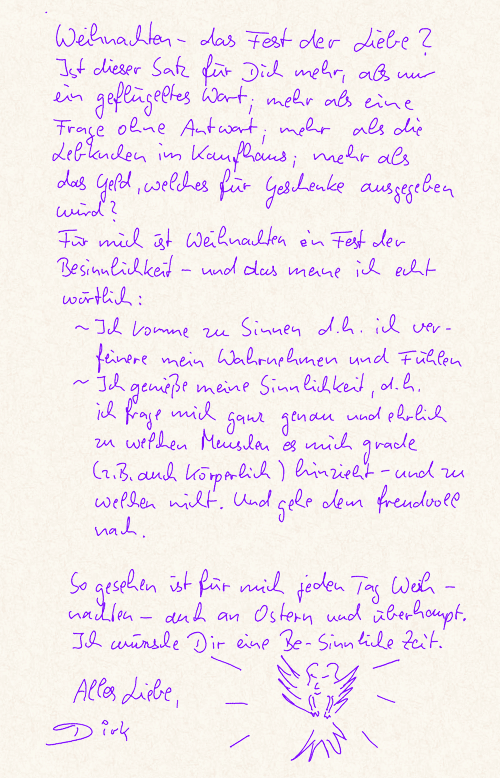 Weihnachten – das Fest der Liebe?
Ist dieser Satz für Dich mehr, als nur
ein geflügeltes Wort; mehr als eine
Frage ohne Antwort; mehr als die
Lebkuchen im Kaufhaus; mehr als
das Geld, welches für Geschenke ausgegeben
wird?
Für mich ist Weihnachten ein Fest der
Besinnlichkeit – und das meine ich echt
wörtlich:
~ Ich komme zu Sinnen d.h. ich ver-
feinere mein Wahrnehmen und Fühlen
~ Ich genieße meine Sinnlichkeit, d.h.
ich frage mich ganz genau und ehrlich
zu welchen Menschen es mich grade
(z.B. auch körperlich) hinzieht – und zu
welchen nicht. Und gehe dem freudvoll
nach.
So gesehen ist für mich jeden Tag Weih-
nachten – auch an Ostern und überhaupt.
Ich wünsche Dir eine Be-Sinnliche Zeit.
Alles Liebe,
Dirk